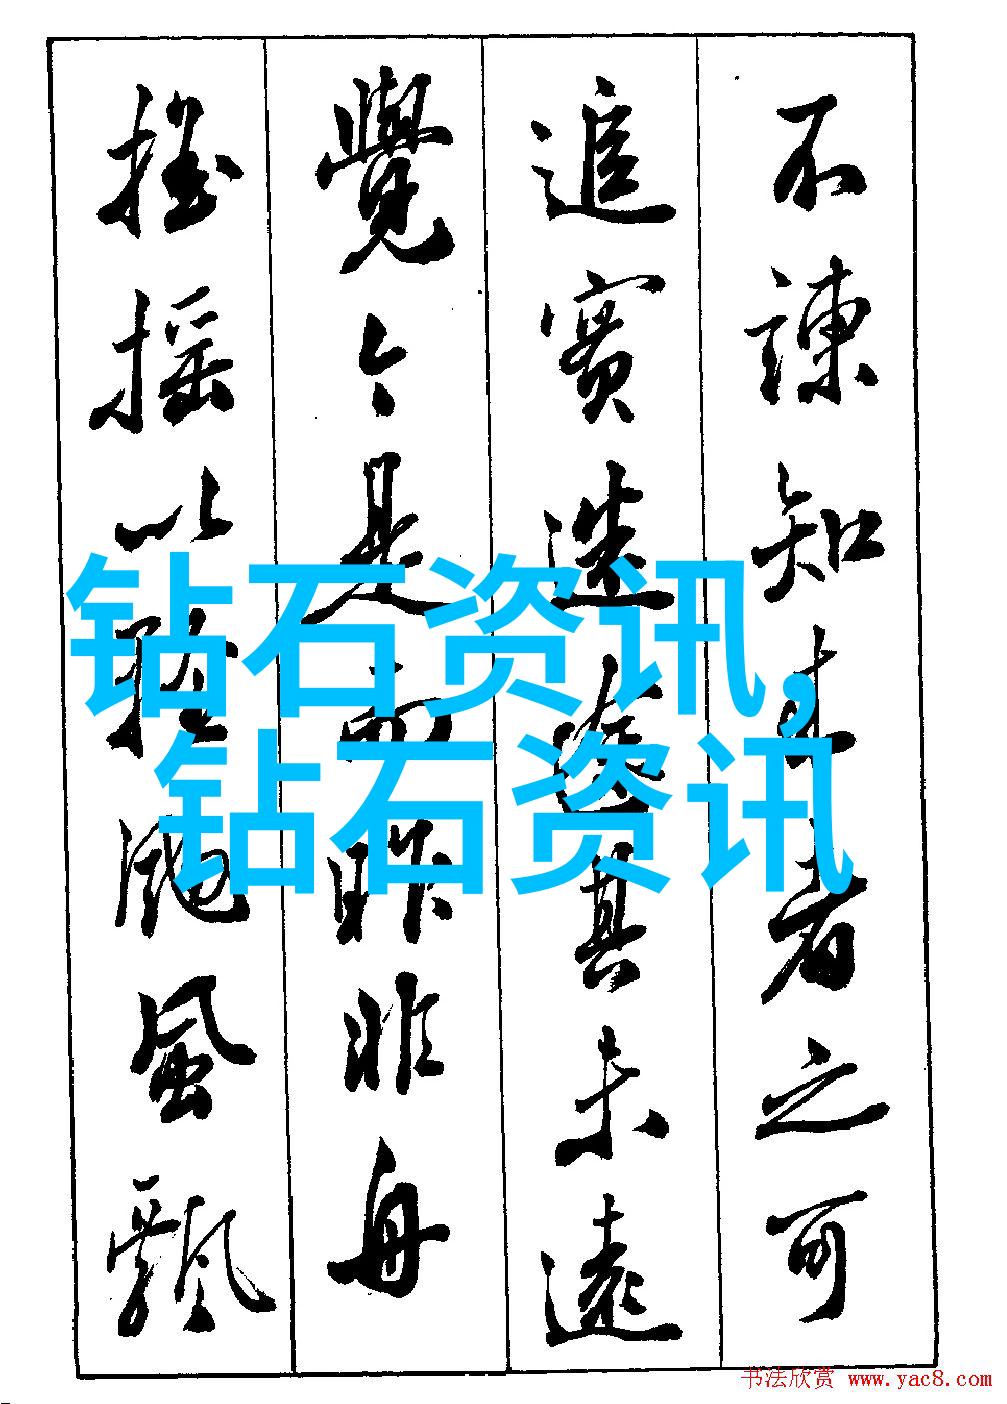 不諫知来者之可
追實迷途其未遠
覺今是而昨非舟
摇摇以輕颺風飄
钻石资讯,
钻石资讯
书法欣赏 www.yac8.com